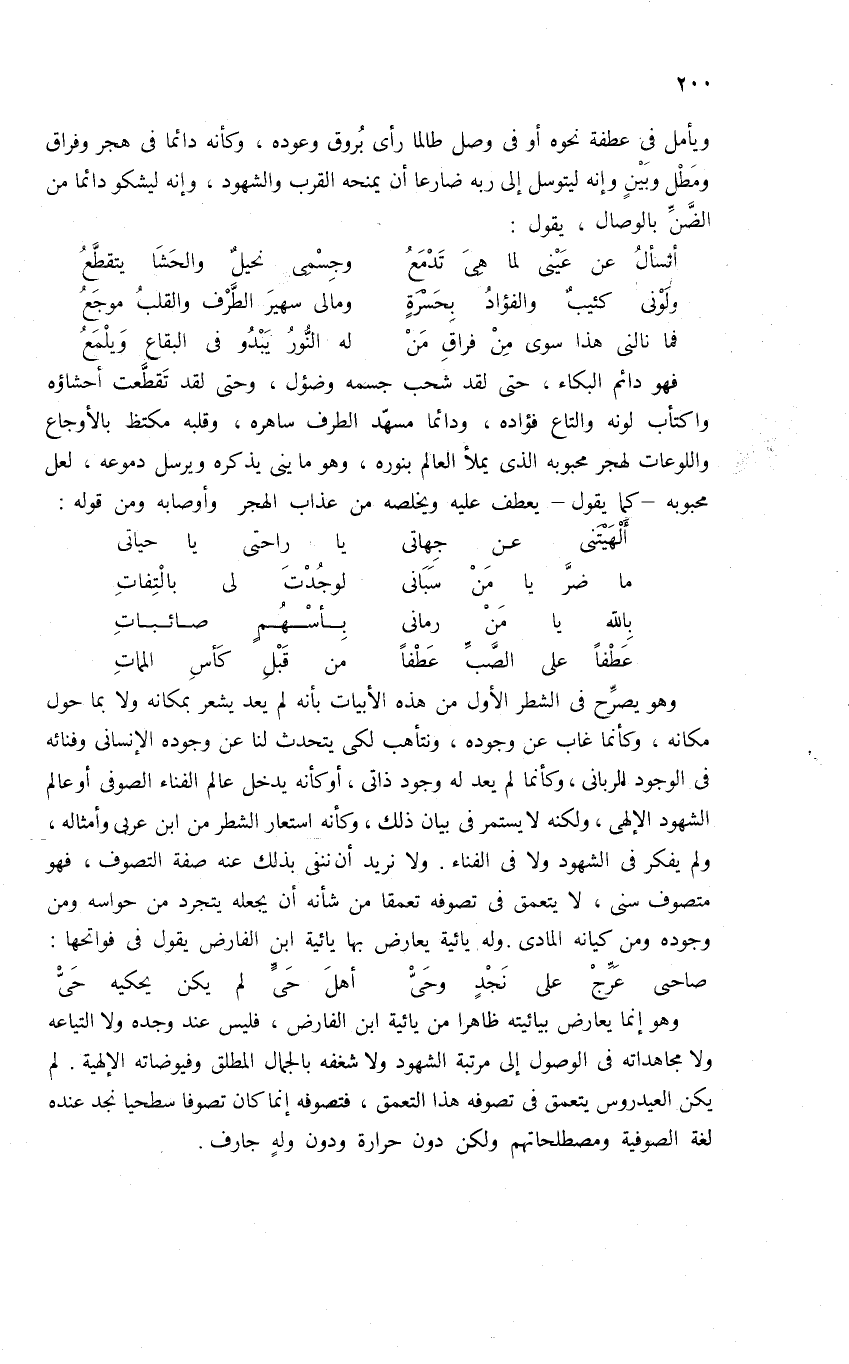 ٢٠٠
ويأمل فى عطفة نحوه أو فى وصل طالما رأى بُروق وعوده ، وكأنه دائما فى هجر وفراق
ومَطْل وبَيْنٍ وإنه ليتوسل إلى ربه ضارعا أن يمنحه القرب والشهود ، وإنه ليشكو دائما من
الضَّنِّ بالوصال ، يقول :
أتسألُ عن عَيْنى لما هِىَ تَدْمَعُ وجِسْمِى نحيلٌ والحَشَا يتقطَّعُ
ولَوْنى كئيبٌ والفؤادُ بِحَسْرَةٍ ومالى سهيرَ الطَّرْف والقلبُ موجَعُ
فما نالنى هذا سوى مِنْ فراقِ مَنْ له النُّورُ يَبْدُو فى البقاع وَيلْمَعُ
فهو دائم البكاء ، حتى لقد شحب جسمه وضؤل ، وحتى لقد تَقطَّعت أحشاؤه
واكتأب لونه والتاع فؤاده ، ودائما مسهّد الطرف ساهره ، وقلبه مكتظ بالأوجاع
واللوعات لهجر محبوبه الذى يملأ العالم بنوره ، وهو ما ينى يذكره ويرسل دموعه ، لعل
محبوبه – كما يقول – يعطف عليه ويخلصه من عذاب الهجر وأوصابه ومن قوله :
أَلْهَيْتَنى عن جِهاتى يا راحتى يا حياتى
ما ضرَّ يا مَنْ سَبَانى لوجُدْتَ لى بالْتِفاتِ
بالله يا مَنْ رمانى بـأسْـهُـمٍ صـائـبـاتِ
عَطْفاً على الصَّبِّ عَطْفاً من قَبْلِ كَأسِ المماتِ
وهو يصرِّح فى الشطر الأول من هذه الأبيات بأنه لم يعد يشعر بمكانه ولا بما حول
مكانه ، وكأنما غاب عن وجوده ، ونتأهب لكى يتحدث لنا عن وجوده الإنسانى وفنائه
فى الوجود الربانى ، وكأنما لم يعد له وجود ذاتى ، أوكأنه يدخل عالم الفناء الصوفى أوعالم
الشهود الإلهى ، ولكنه لايستمر فى بيان ذلك ، وكأنه استعار الشطر من ابن عربى وأمثاله ،
ولم يفكر فى الشهود ولا فى الفناء . ولا نريد أن ننفى بذلك عنه صفة التصوف ، فهو
متصوف سنى ، لا يتعمق فى تصوفه تعمقا من شأنه أن يجعله يتجرد من حواسه ومن
وجوده ومن كيانه المادى . وله يائية يعارض بها يائية ابن الفارض يقول فى فواتحها :
صاحبى عَرِّجْ على نَجْدٍ وحَىّْ أهلَ حَىٍّ لم يكن يحكيه حَىّْ
وهو إنما يعارض بيائيته ظاهرا من يائية ابن الفارض ، فليس عند وجده ولا التياعه
ولا مجاهداته فى الوصول إلى مرتبة الشهود ولا شغفه بالجمال المطلق وفيوضاته الإلهية . لم
يكن العيدروس يتعمق فى تصوفه هذا التعمق ، فتصوفه إنما كان تصوفا سطحيا نجد عنده
لغة الصوفية ومصطلحاتهم ولكن دون حرارة ودون ولهٍ جارف .